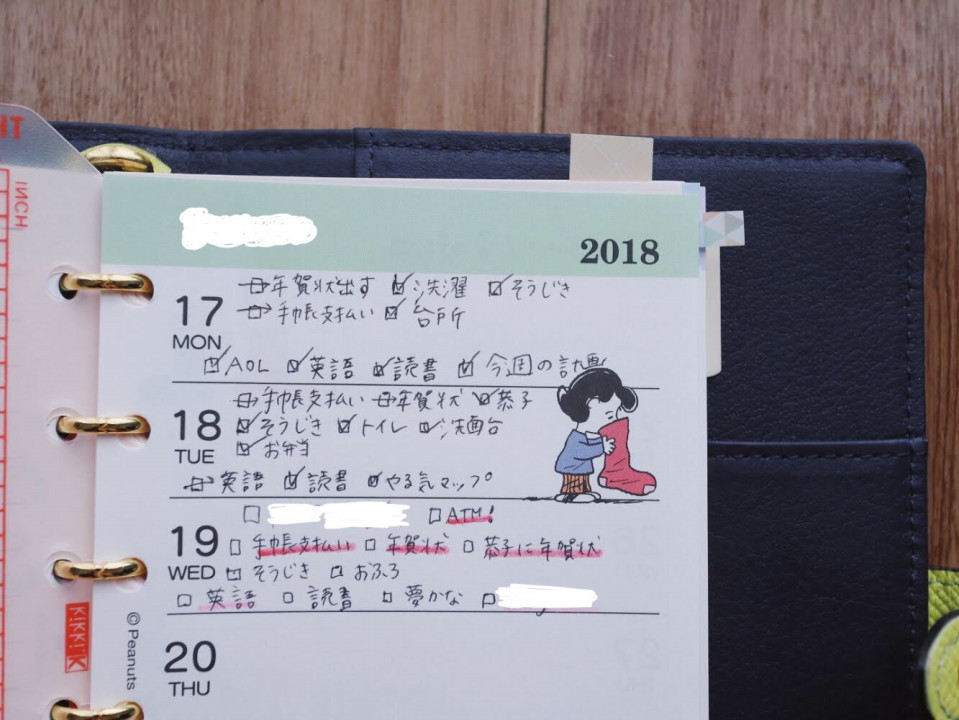 NT
INCH
2018
17
MON
年賀状出す 洗濯 そうじき
手帳支払い 台所
AOL 英語 読書 今週の計画
18
TUE
手帳支払い 年賀状 恭子
そうじき トイレ 洗面台
お弁当
英語 読書 やる気マップ
ATM!
19
WED
手帳支払い 年賀状 恭子に年賀状
そうじき おふろ
英語 読書 夢かな
kikki.K
© Peanuts
20
THU